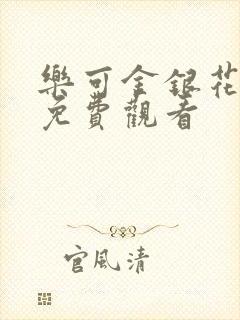 樂可金銀花
免費觀看
官風清